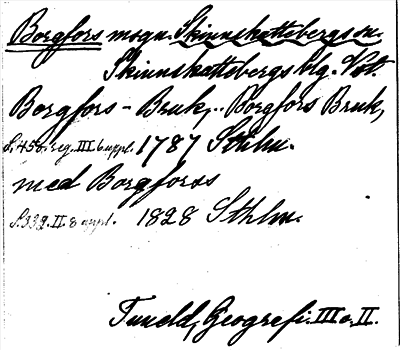 Borgfors msgn. Skinnskattebergs sn.
Skinnskattebergs blg. Vstm.
Borgfors-Bruk, .. Borgfors Bruk,
S. 458. reg. III. 6 uppl. 1787 Sthlm.
med Borgforss
S. 332. II. 8 uppl. 1828 Sthlm.
Tuneld, Geografi. III o. II.